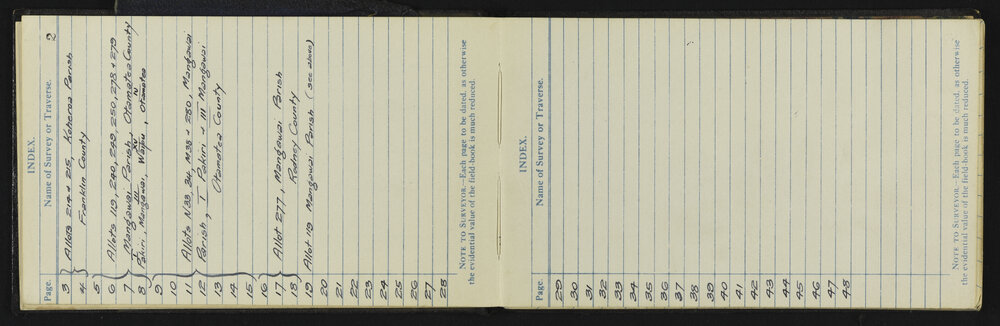 2
INDEX.
Page. Name of Survey or Traverse.
3 Allots 214 & 215, Koheroa Parish
4 Franklin County
5
6 Allots 119, 240, 249, 250, 278 & 279
7 Mangawai Parish, Otamatea County
I III XV IV
8 Pakiri, Mangawai, Waipu, Otamatea
9
10
11 Allots N33, 34, M35 & 280, Mangawai
12 Parish, I Pakiri & III Mangawai
13 Otamatea County
14
15
16
17 Allot 277, Mangawai Parish
18 Rodney County
19 Allot 119 Mangawai Parish (see above)
20
21
22
23
24
25
26
27
28
NOTE TO SURVEYOR.—Each page to be dated, as otherwise
the evidential value of the field-book is much reduced.
INDEX.
Page. Name of Survey or Traverse.
29
30
31
32
33
34
35
36
37
38
39
40
41
42
43
44
45
46
47
48
NOTE TO SURVEYOR.—Each page to be dated, as otherwise
the evidential value of the field-book is much reduced.